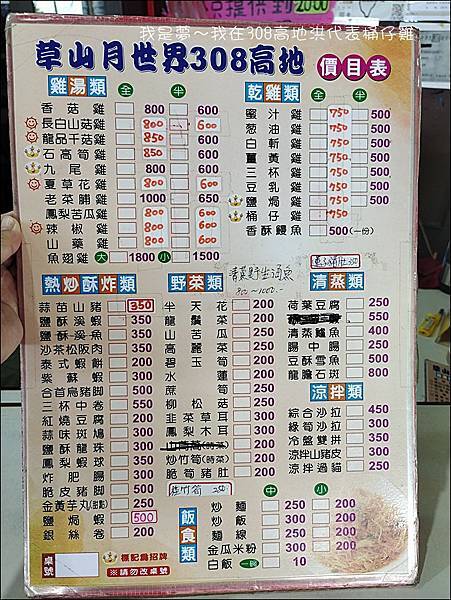 我是夢～我在308高地洪代表桶仔雞
草山月世界308高地
價目表
雞湯類 全 半
香菇雞 800 600
長白山菇雞 800 600
龍品干菇雞 850 600
石高筍雞 850 600
九尾雞 800 600
夏草花雞 800 600
老菜脯雞 1000 650
鳳梨苦瓜雞 800 600
辣椒雞 800 600
山藥雞 800 600
魚翅雞 大 1800 小 1500
乾雞類 全 半
蜜汁雞 750 500
葱油雞 750 500
白斬雞 750 500
薑黃雞 750 500
三杯雞 750 500
豆乳雞 750 500
鹽焗雞 750 500
桶仔雞 750
香酥鰻魚 500(一份)
熱炒酥炸類
蒜苗山豬 350
鹽酥溪蝦 350
鹽酥溪魚 350
沙茶松阪肉 350
泰式蝦餅 350
紫蘇蝦 300
合首烏豬腳 500
三杯中卷 550
紅燒豆腐 200
蒜味斑鳩 300
鹽酥龍珠 300
鳳梨蝦球 350
炸肥腸 300
脆皮豬腳 500
金黃芋丸(甜點) 250
鹽焗蝦 500
銀絲卷 200
野菜類
半天花 200
龍鬚菜 200
山苦瓜 200
高麗菜 200
碧玉筍 200
水蓮 200
蔗筍 200
柳松菇 200
韭菜草耳 300
鳳梨木耳 300
炒竹筍(時菜) 200
脆筍豬肚 200
800～1000.-
清蒸類
荷葉豆腐 250
550
清蒸鱸魚 400
腸中腸 250
豆酥雪魚 500
龍膽石斑 800
涼拌類
綜合沙拉 450
綠筍沙拉 300
冷盤雙拼 350
涼拌山豬皮 300
涼拌過貓 250
飯食類 中 小
炒麵 250 200
炒飯 250 200
麵線 250 200
金瓜米粉 300 200
白飯 一碗 10
桌號
標記為招牌
※請勿改桌號